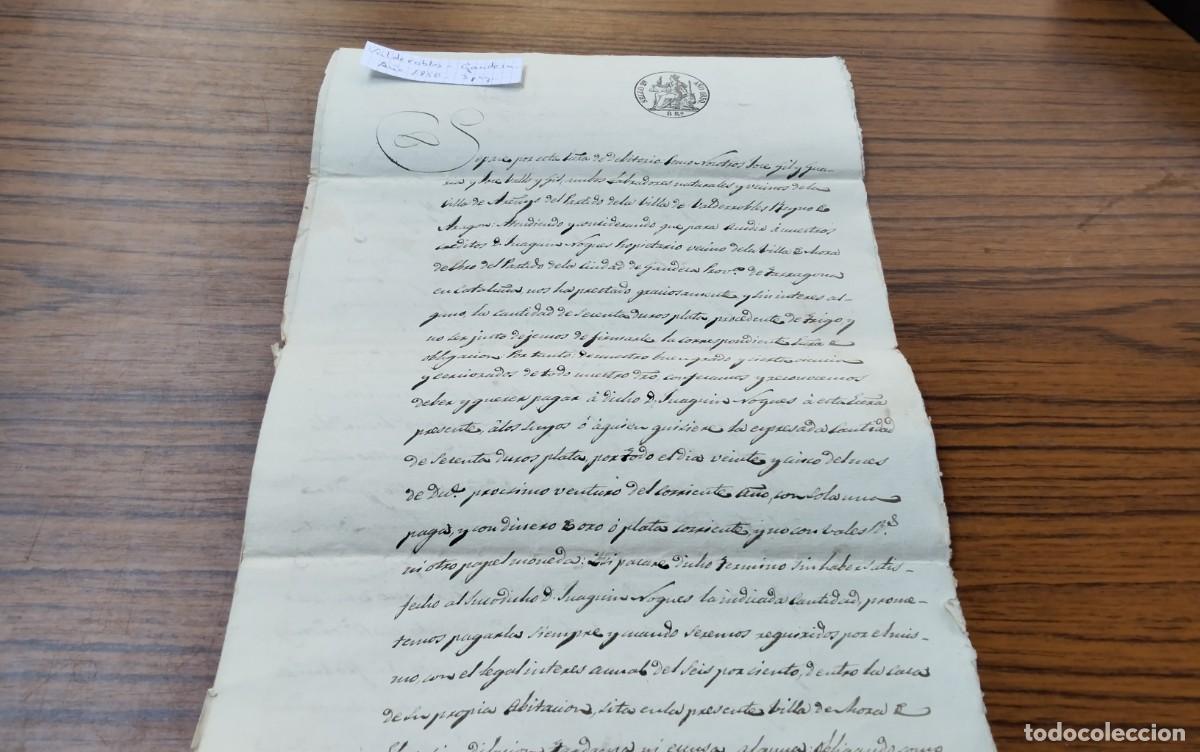 Valderrobles - Gandesa.
Año 1850
Sepase por esta Escra de debitorio Como Nosotros Jose Gil y Gua-
y Jose Vallo y Gil, ambos Labradores naturales y vecinos de la
Villa de Areñys del Partido dela Villa de Valderrobles Reyno de
Aragon: Atendiendo y considerando que para acudir á nuestros
créditos D. Juaquin Nogues Propietario vecino dela Villa de Mora
de Ebro del Partido dela Ciudad de Gandesa Provª de Tarragona
en Cataluña, nos ha prestado graciosamente y sin interes al-
guno, la cantidad de Setenta duros plata, procedente de trigo, y
no ser justo dejemos de firmarle la correspondiente Escra de
obligacion. Por tanto de nuestro buen grado y cierta ciencia
y cerciorados de todo nuestro dro, confesamos y reconocemos
deber y querer pagar á dicho D. Juaquin Nogues á esta Escra
presente, álos suyos ó áquien quisiere la expresada Cantidad
de Setenta duros plata, por todo el dia veinte y cinco del mes
de Dice. procsimo venturo del corriente Año, con sola una
paga, y con dinero de oro ó plata corriente y no con vales Rs.
ni otro papel moneda: Y si pasare dicho termino sin haber satis-
fecho al Susodicho D. Juaquin Nogues la indicada Cantidad, prome-
temos pagarla siempre y cuando seremos requiridos por el mis-
mo, con el legal interes anual del seis por ciento, dentro la casa
de su propia Abitacion, sita enla presente Villa de Mora de
dilacion tardanza ni escusa alguna: Obligando como
todocoleccion